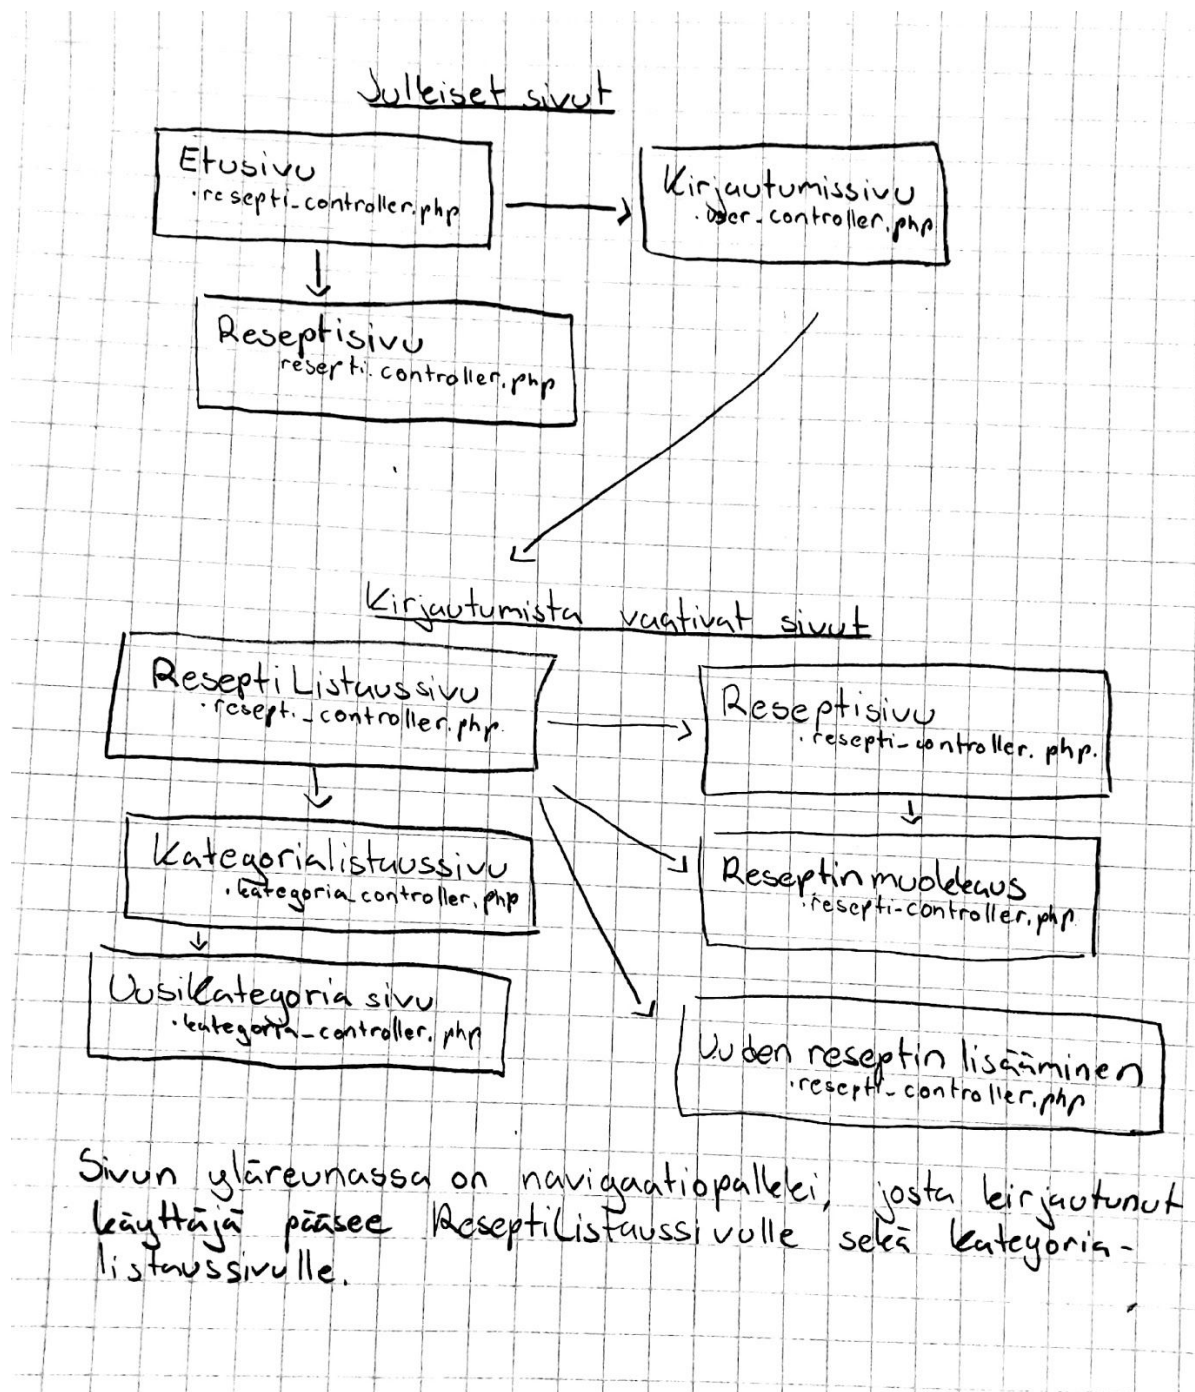 Julkiset sivut
Etusivu
·resepti_controller.php
Kirjautumissivu
·user_controller.php
Reseptisivu
resepti_controller.php
Kirjautumista vaativat sivut
ReseptiListaussivu
·resepti_controller.php
Reseptisivu
·resepti_controller.php.
Kategorialistaussivu
·kategoria_controller.php
Reseptinmuokkaus
·resepti_controller.php
Uusikategoria sivu
·kategoria_controller.php
Uuden reseptin lisääminen
·resepti_controller.php
Sivun yläreunassa on navigaatiopalkki, josta kirjautunut
käyttäjä pääsee ReseptiListaussivulle sekä kategoria-
listaussivulle.